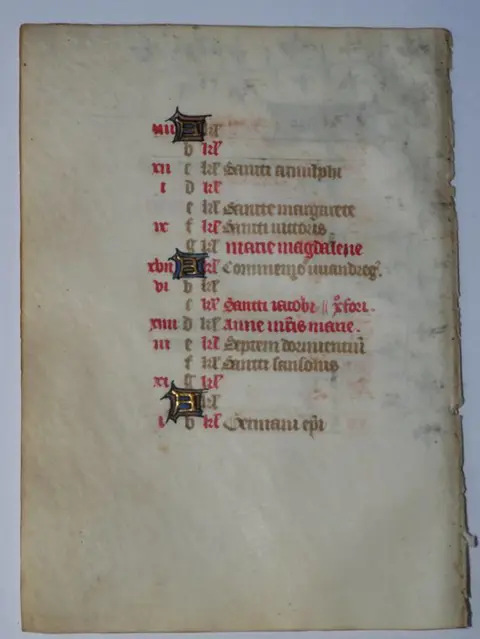 iiii A kl
b kl
xii c kl Sancti arnulphi
i d kl
e kl Sancte margarete
ix f kl Sancti uictoris
g kl marie magdalene
xvii A kl
vi b kl
c kl Sancti iacobi xfori.
xiiii d kl Anne mris marie.
iii e kl Septem dormientiū
f kl Sancti sansonis
xi g kl
A kl
i b kl Germani epi